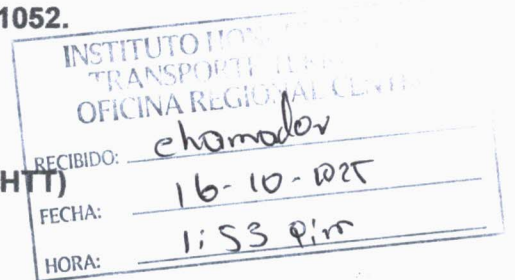 1052.
INSTITUTO HON
TRANSPORTE TERR
OFICINA REGIONAL CENTR
RECIBIDO:
HTT)
FECHA: 16-10-2025
HORA: 1:53 pm